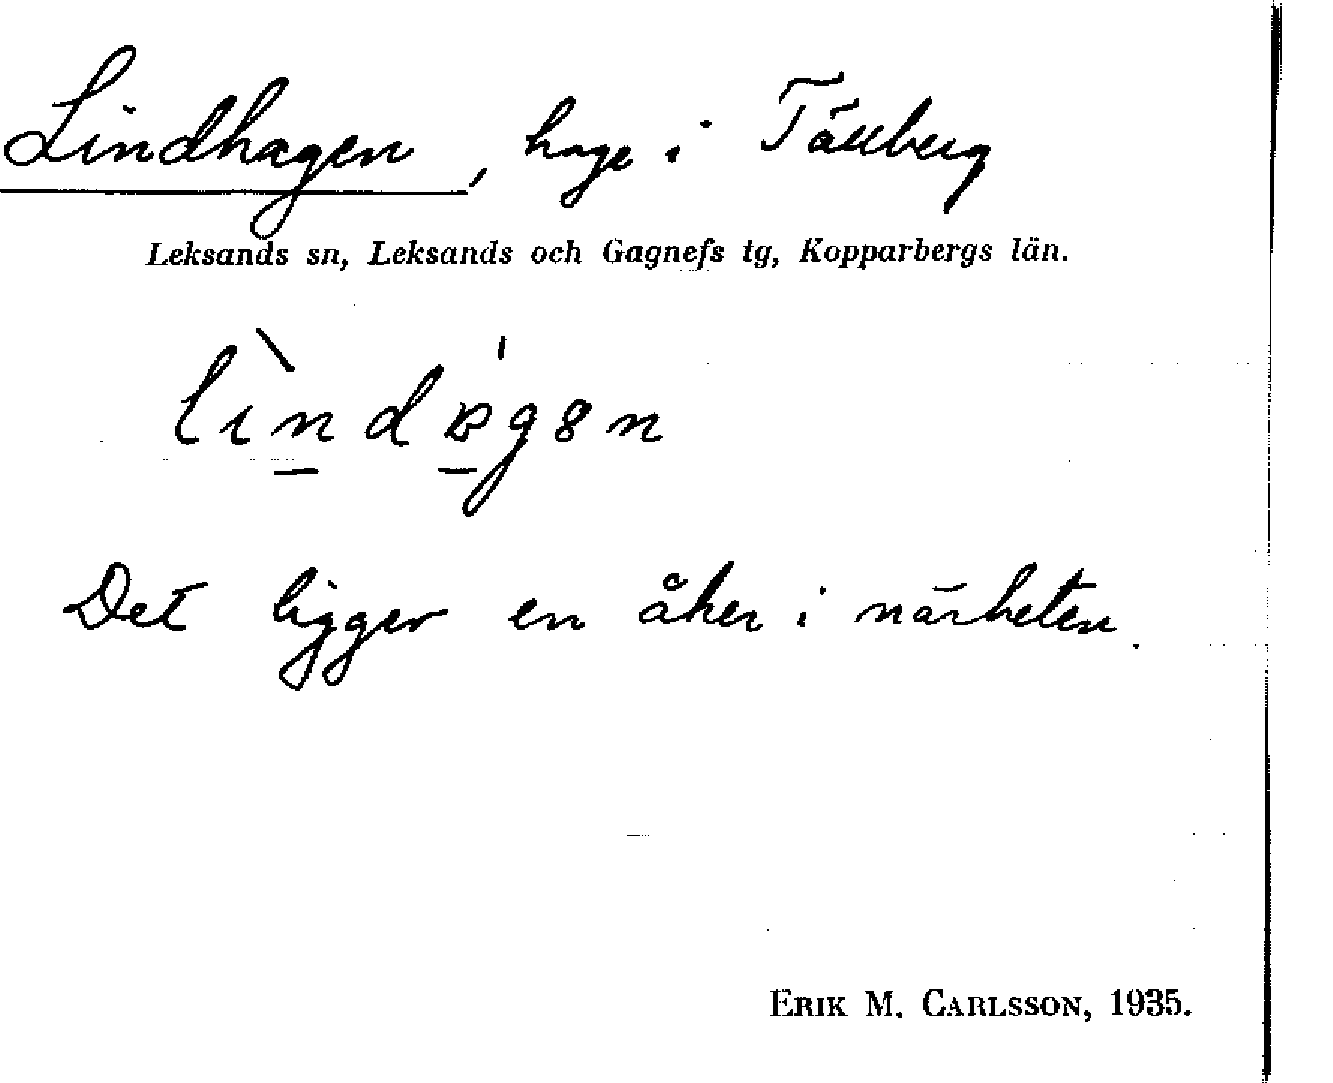 Lindhagen, hage i Tällberg
Leksands sn, Leksands och Gagnefs tg, Kopparbergs län.
Det ligger en åker i närheten.
ERIK M. CARLSSON, 1935.